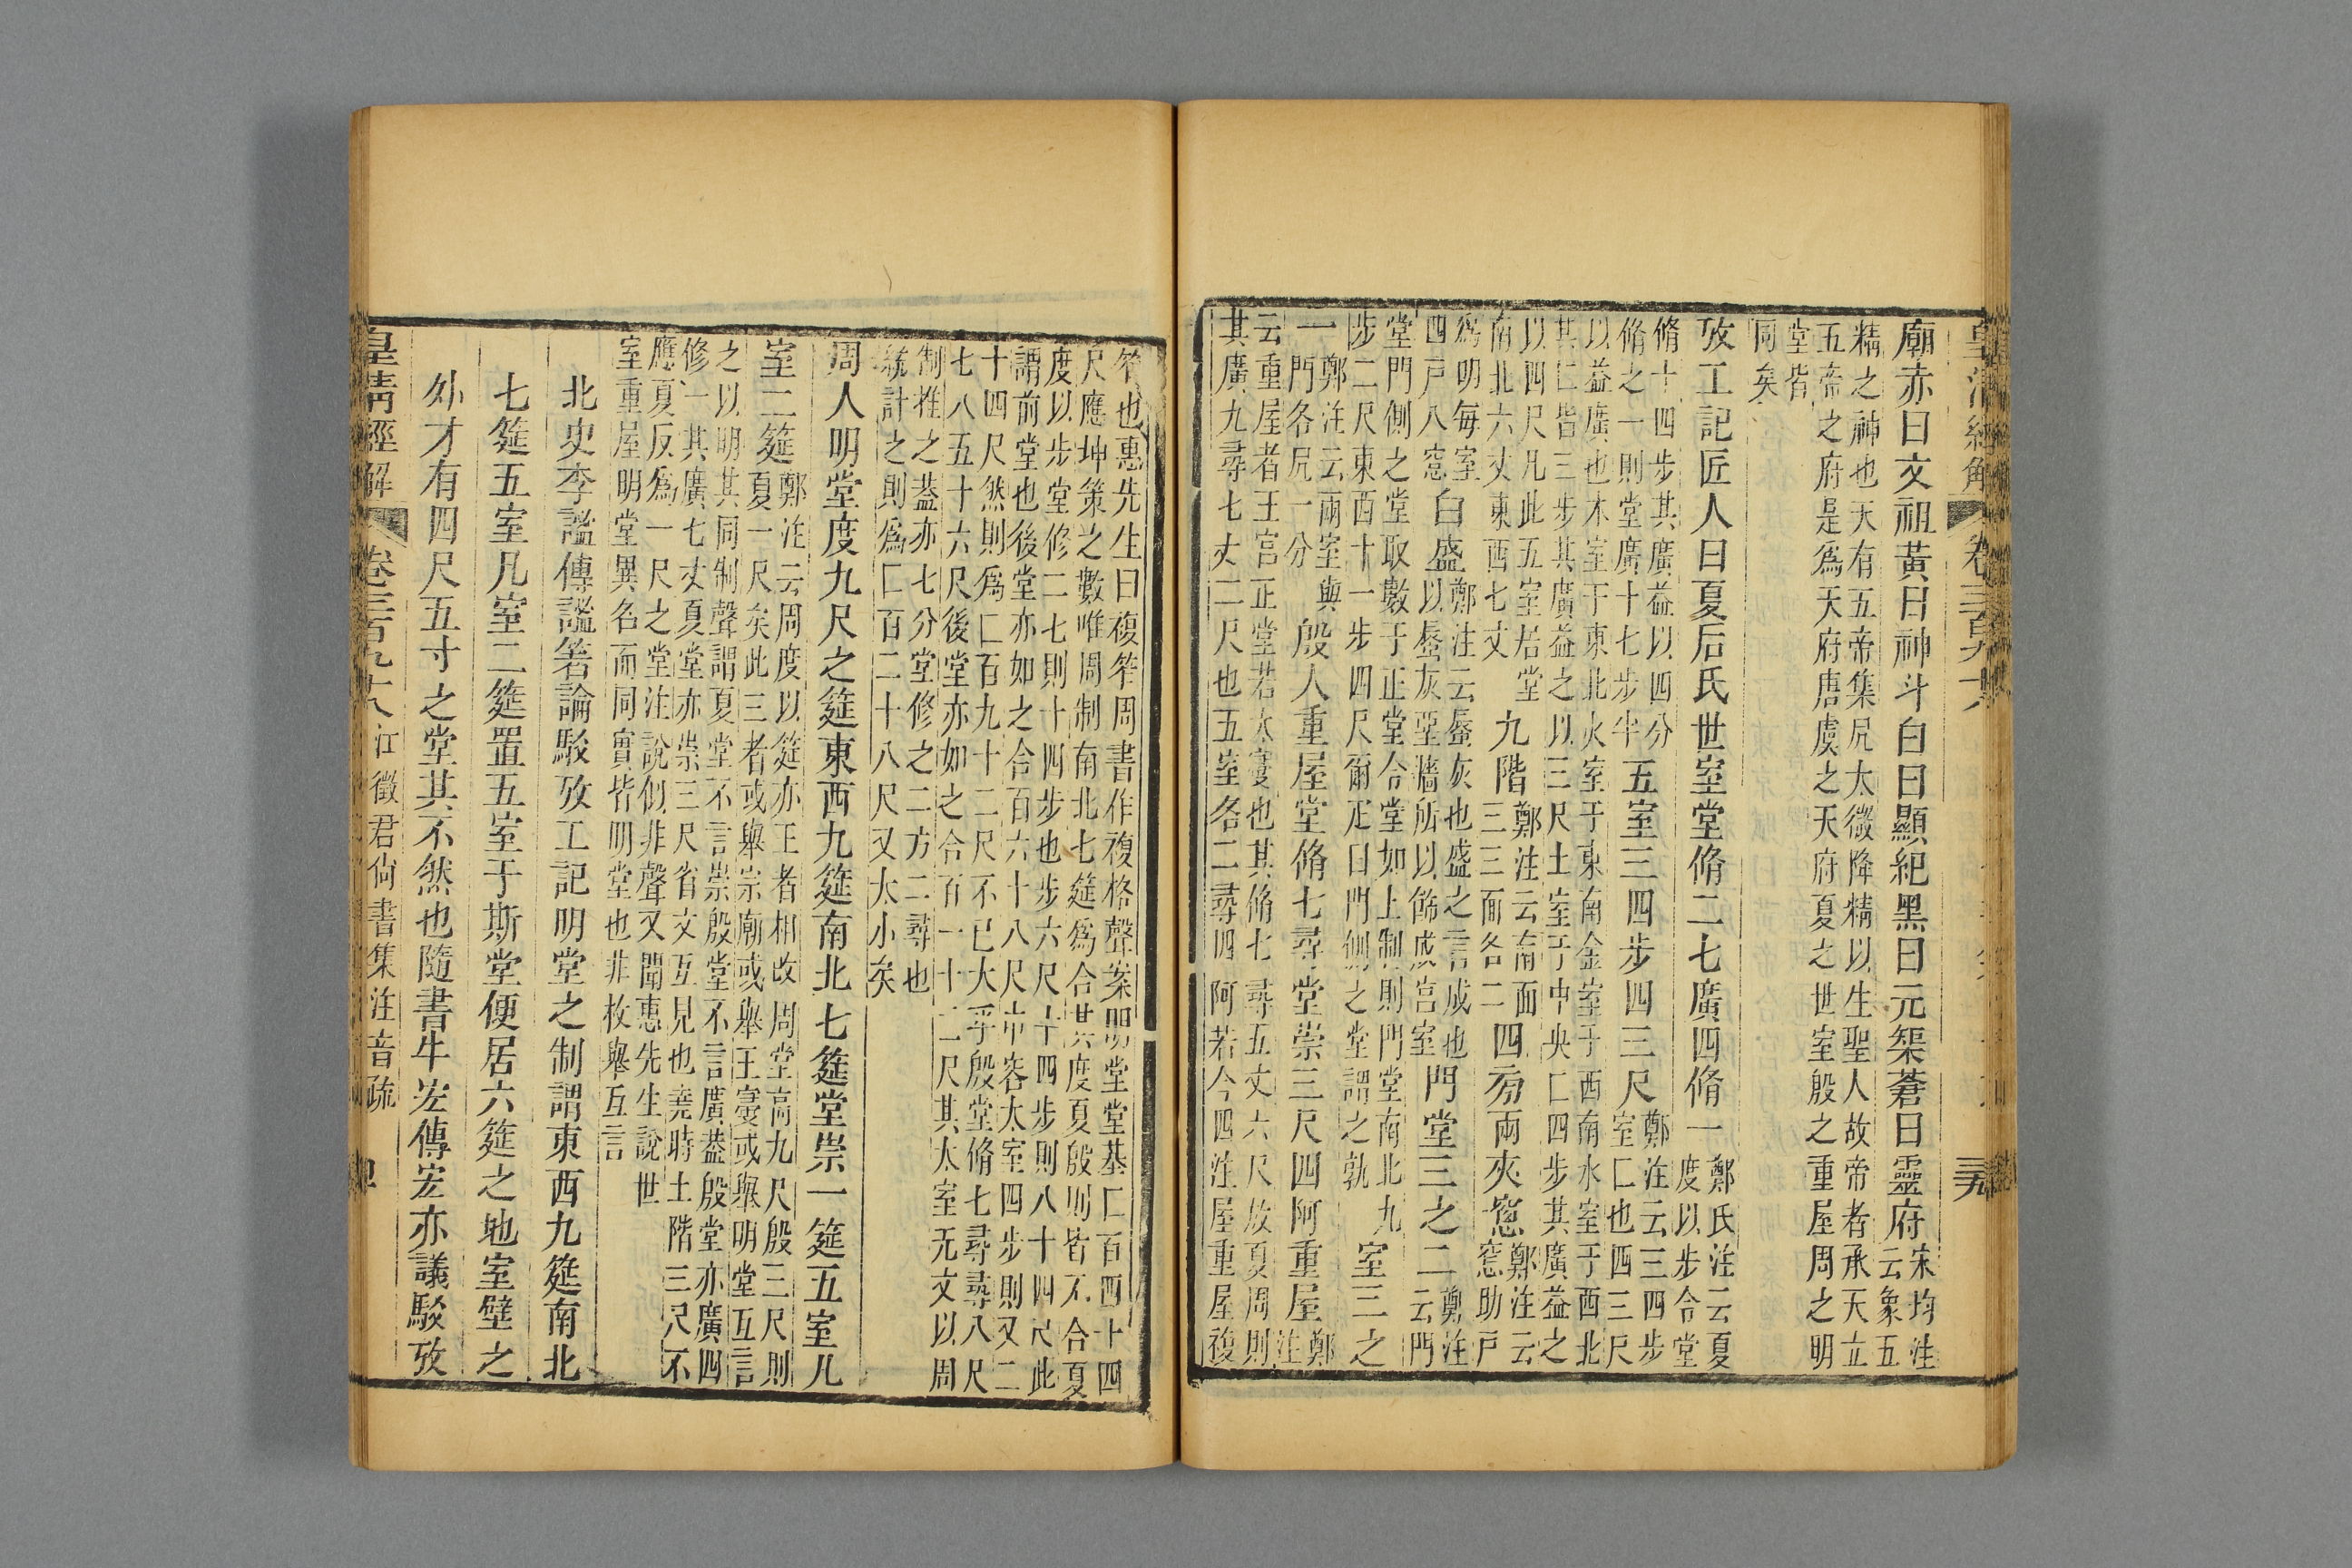 皇清經解 卷三百九十六
廟赤曰文祖黃曰神斗白曰顯紀黑曰元榘蒼曰靈府宋均注
云象五
精之神也天有五帝集凥太微降精以生聖人故帝者承天立
五帝之府是爲天府唐虞之天府夏之世室殷之重屋周之明
堂皆
同矣
攷工記匠人曰夏后氏世室堂脩二七廣四脩一鄭氏注云夏
度以步合堂
脩十四步其廣益以四分
脩之一則堂廣十七步半
五室三四步四三尺鄭注云三四步
室匚也四三尺
以益廣也木室于東北火室于東南金室于西南水室于西北
其匚皆三步其廣益之以三尺土室于中央匚四步其廣益之
以四尺凡此五室居堂
南北六丈東西七丈
九階鄭注云南面
三三面各二
四旁兩夾窻鄭注云
窓助戶
爲明每室
四戶八窓
白盛鄭注云蜃灰也盛之言成也
以蜃灰堊牆所以飾成宮室
門堂三之二鄭注
云門
堂門側之堂取數于正堂合堂如上制則門堂南北九
步二尺東西十一步四尺爾疋曰門側之堂謂之孰
室三之
一鄭注云兩室與
門各凥一分
殷人重屋堂脩七尋堂崇三尺四阿重屋鄭
注
云重屋者王宮正堂若太寢也其脩七尋五丈六尺放夏周則
其廣九尋七丈二尺也五室各二尋四阿若今四注屋重屋複
笮也惠先生曰複笮周書作複格聲案明堂堂基匚百四十四
尺應坤策之數唯周制南北七筵爲合其度夏殷則皆不合夏
度以步堂修二七則十四步也步六尺十四步則八十四尺此
謂前堂也後堂亦如之合百六十八尺中容太室四步則又二
十四尺然則爲匚百九十二尺不已大乎殷堂脩七尋尋八尺
七八五十六尺後堂亦如之合百一十二尺其太室无文以周
制推之葢亦七分堂修之二方二尋也
統計之則爲匚百二十八尺又太小矣
周人明堂度九尺之筵東西九筵南北七筵堂崇一筵五室凡
室二筵鄭注云周度以筵亦王者相改周堂高九尺殷三尺則
夏一尺矣此三者或舉宗廟或舉王寢或舉明堂互言
之以明其同制聲謂夏堂不言崇殷堂不言廣葢殷堂亦廣四
修一其廣七丈夏堂亦崇三尺省文互見也堯時土階三尺不
應夏反爲一尺之堂注說似非聲又聞惠先生說世
室重屋明堂異名而同實皆明堂也非枚舉互言
北史李謐傳謐箸論駁攷工記明堂之制謂東西九筵南北
七筵五室凡室二筵置五室于斯堂便居六筵之地室壁之
外才有四尺五寸之堂其不然也隨書牛宏傳宏亦議駁攷
皇清經解 卷三百九十六 江徵君尙書集注音疏